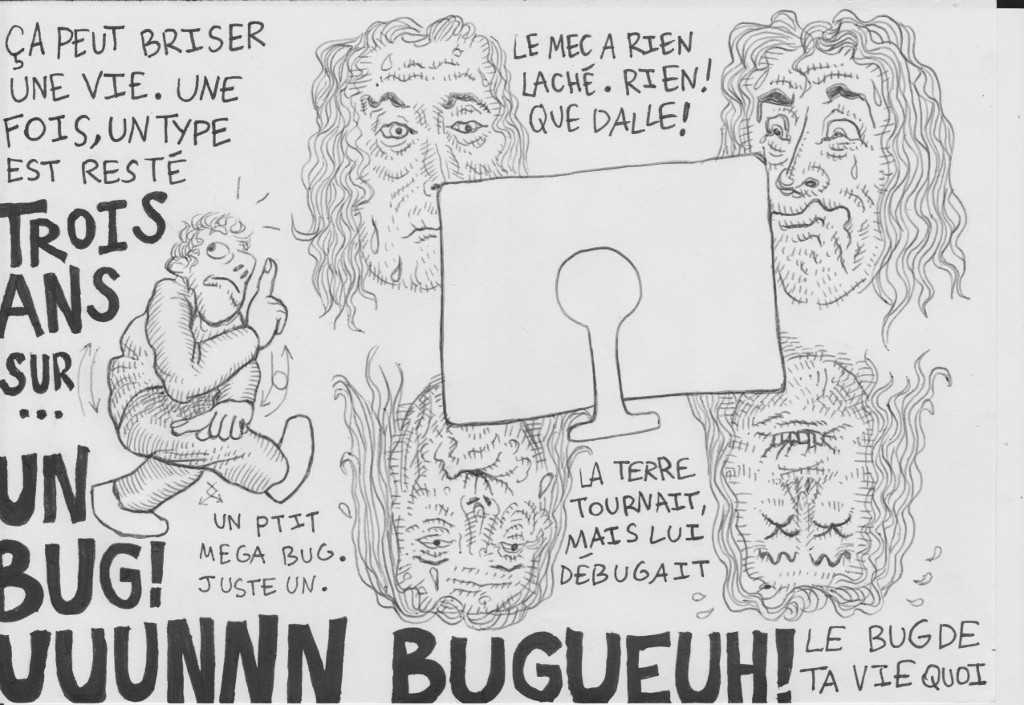 ÇA PEUT BRISER
UNE VIE. UNE
FOIS, UN TYPE
EST RESTÉ
TROIS
ANS
SUR
...
UN
BUG!
UN PTIT
MEGA BUG.
JUSTE UN.
LE MEC A RIEN
LACHÉ. RIEN!
QUE DALLE!
LA TERRE
TOURNAIT,
MAIS LUI
DÉBUGAIT
UUUNNN BUGUEUH!
LE BUG DE
TA VIE QUOI